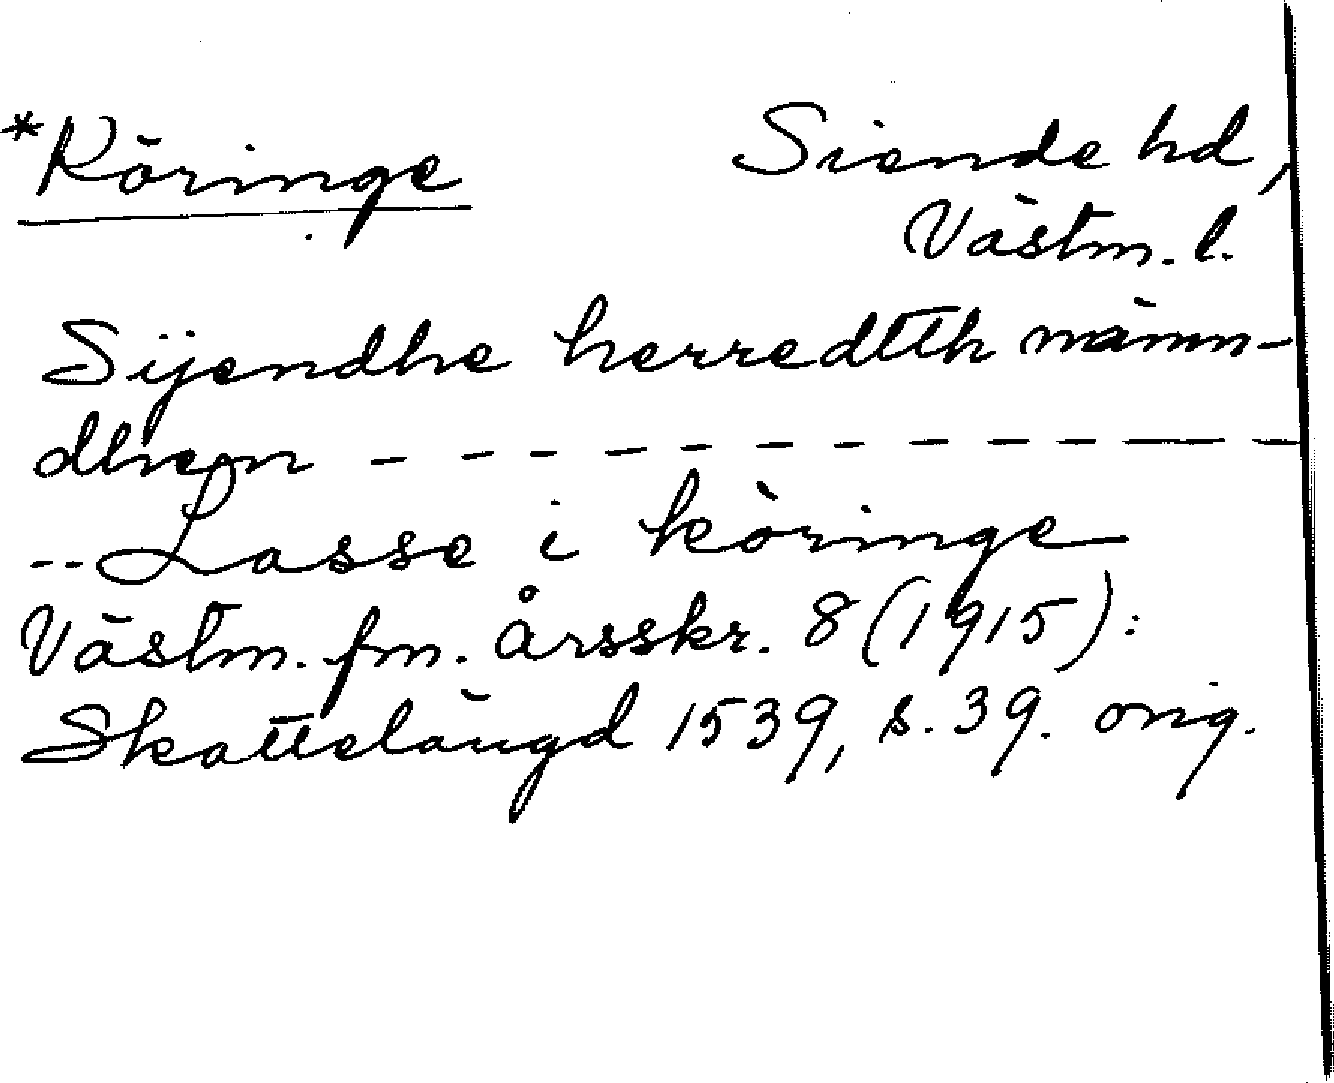 *Köringe
Siende hd,
Västm. l.
Sijendhe herredtth nämn-
dhen - - - - - - - - - - - -
--Lasse i köringe
Västm. fm. årsskr. 8 (1915):
Skattelängd 1539, s. 39. orig.